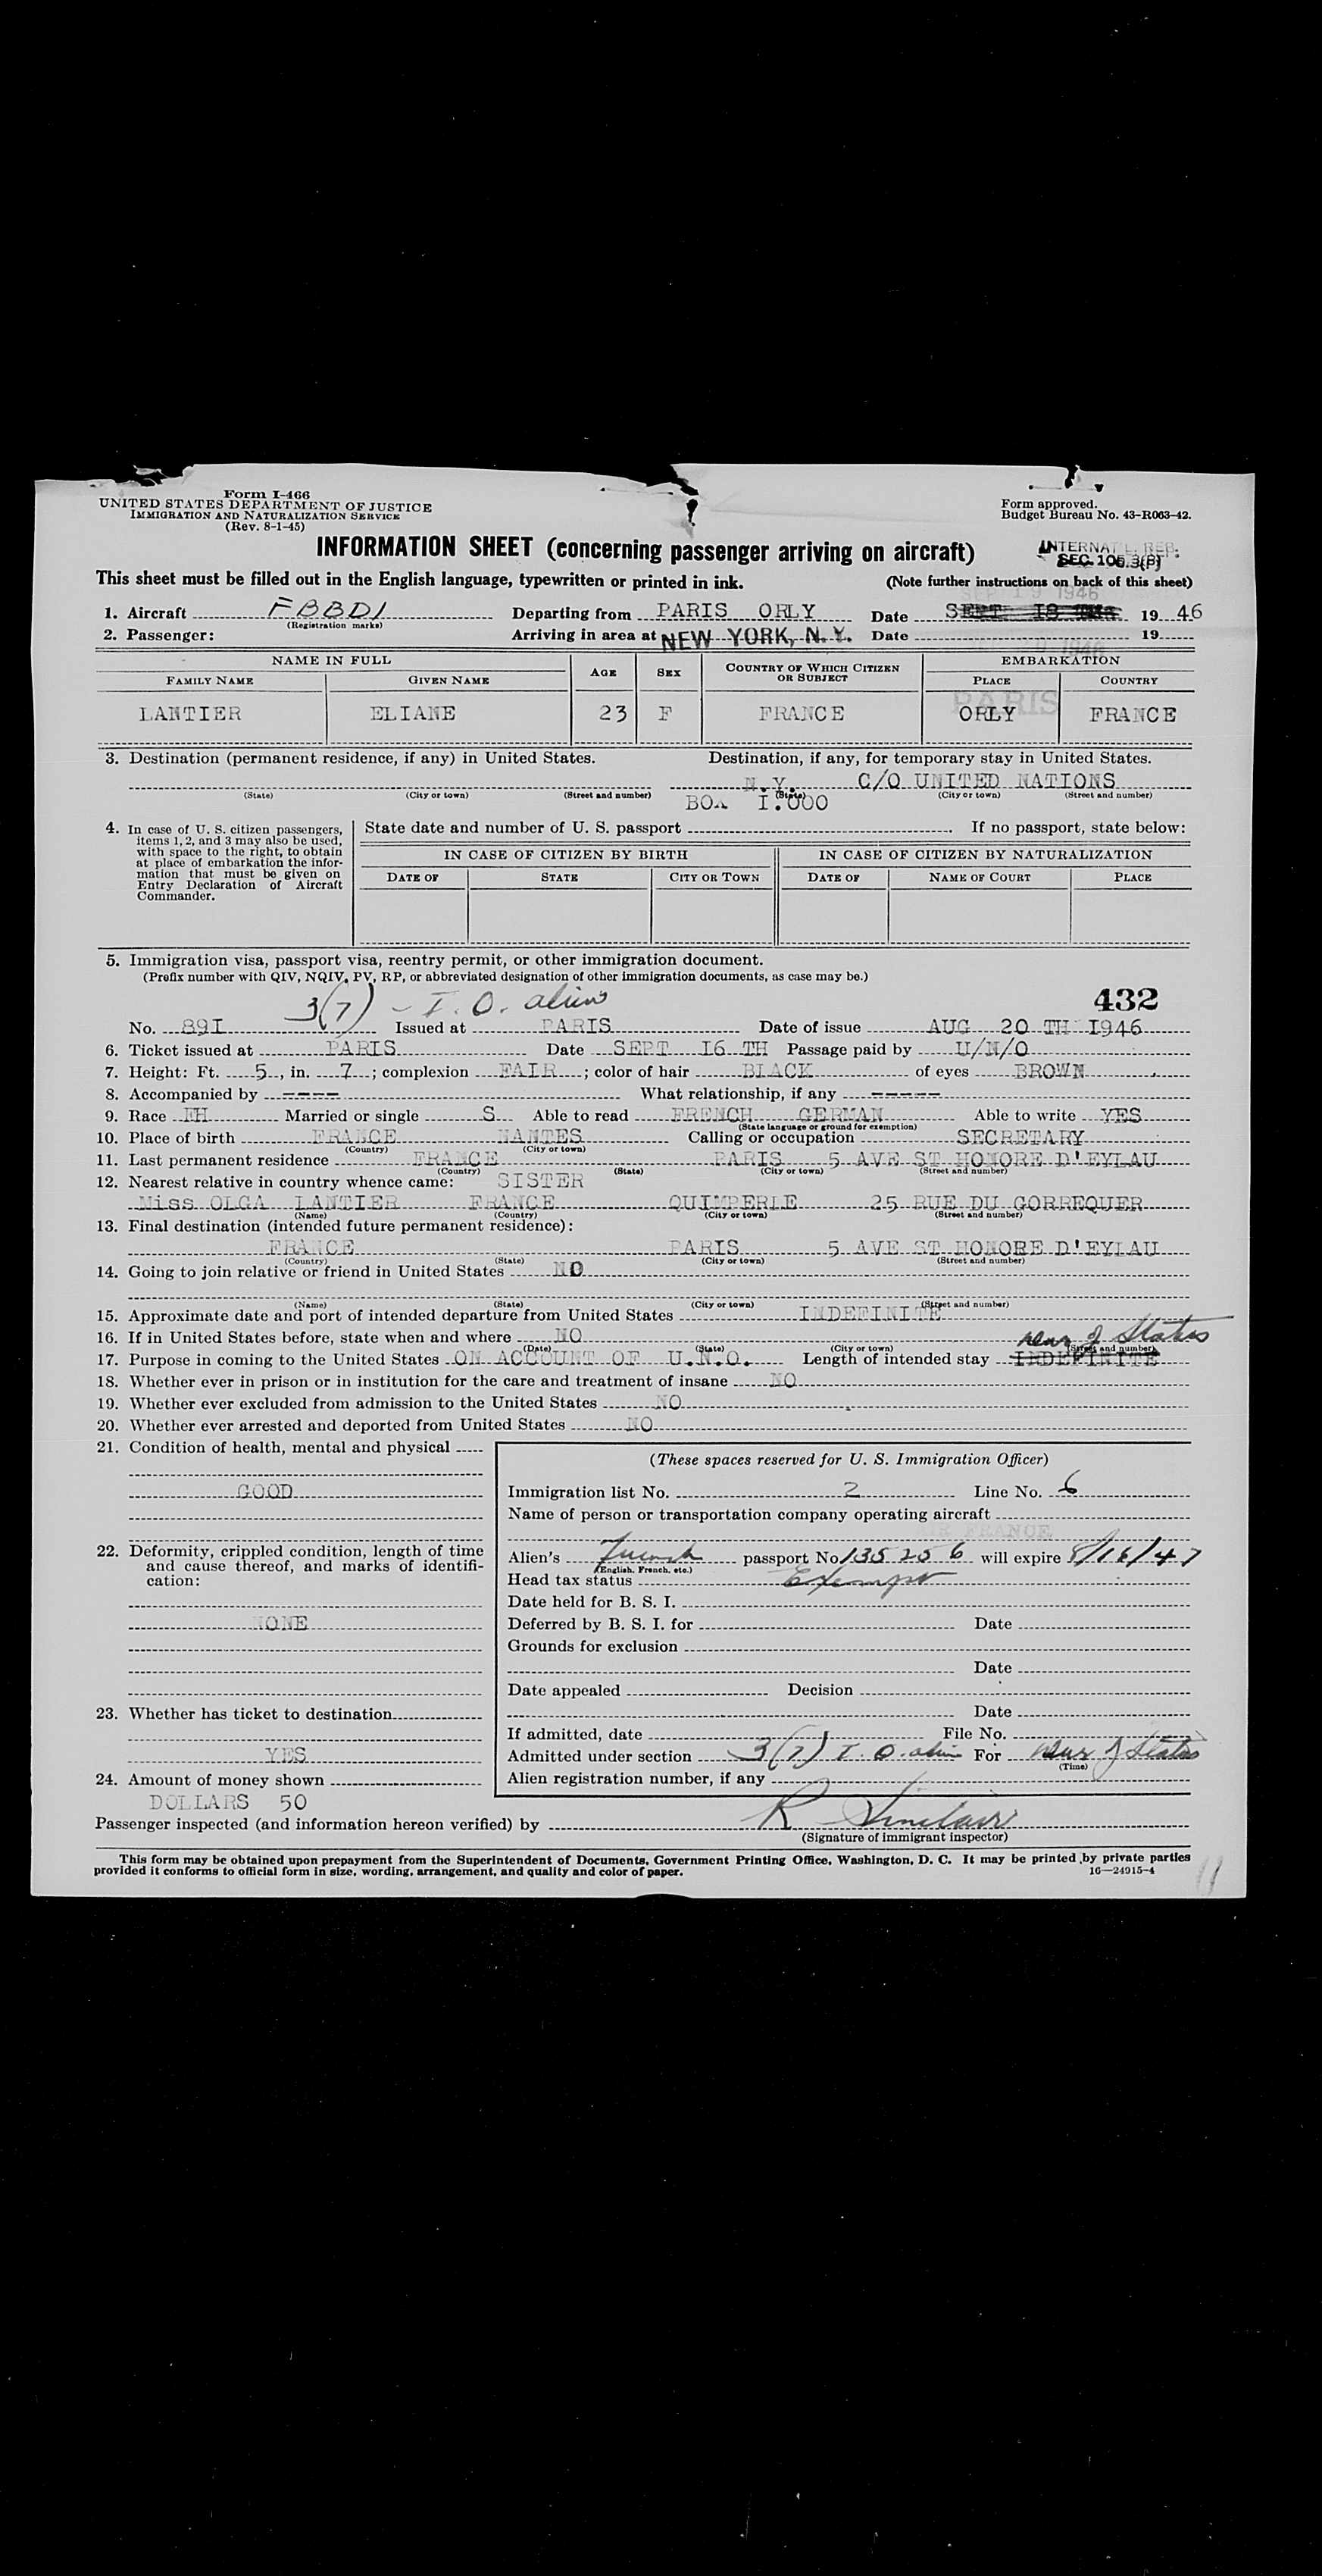 Form I-466
UNITED STATES DEPARTMENT OF JUSTICE
IMMIGRATION AND NATURALIZATION SERVICE
(Rev. 8-1-45)
Form approved.
Budget Bureau No. 43-R063-42.
INFORMATION SHEET (concerning passenger arriving on aircraft)
INTERNAT'L. REP.
SEC. 105.3(P)
This sheet must be filled out in the English language, typewritten or printed in ink.
(Note further instructions on back of this sheet)
SEP 19 1946
1. Aircraft FBBDI Departing from PARIS ORLY Date SEPT 18 19 46
(Registration marks)
2. Passenger: Arriving in area at NEW YORK, N.Y. Date 19
NAME IN FULL AGE SEX COUNTRY OF WHICH CITIZEN OR SUBJECT EMBARKATION
FAMILY NAME GIVEN NAME PLACE COUNTRY
PARIS
LANTIER ELIANE 23 F FRANCE ORLY FRANCE
3. Destination (permanent residence, if any) in United States. Destination, if any, for temporary stay in United States.
N.Y. C/O UNITED NATIONS
(State) (City or town) (Street and number) (State) (City or town) (Street and number)
BOX I.000
4. In case of U. S. citizen passengers, items 1, 2, and 3 may also be used, with space to the right, to obtain at place of embarkation the information that must be given on Entry Declaration of Aircraft Commander.
State date and number of U. S. passport . If no passport, state below:
IN CASE OF CITIZEN BY BIRTH IN CASE OF CITIZEN BY NATURALIZATION
DATE OF STATE CITY OR TOWN DATE OF NAME OF COURT PLACE
5. Immigration visa, passport visa, reentry permit, or other immigration document.
(Prefix number with QIV, NQIV, PV, RP, or abbreviated designation of other immigration documents, as case may be.)
3(7) - I. O. alien
432
No. 89I Issued at PARIS Date of issue AUG 20 TH 1946
6. Ticket issued at PARIS Date SEPT I6 TH Passage paid by U/N/O
7. Height: Ft. 5, in. 7; complexion FAIR; color of hair BLACK of eyes BROWN
8. Accompanied by ---- What relationship, if any -----
9. Race FH Married or single S Able to read FRENCH GERMAN Able to write YES
(State language or ground for exemption)
10. Place of birth FRANCE NANTES Calling or occupation SECRETARY
(Country) (City or town)
11. Last permanent residence FRANCE PARIS 5 AVE ST HONORE D'EYLAU
(Country) (State) (City or town) (Street and number)
12. Nearest relative in country whence came: SISTER
Miss OLGA LANTIER FRANCE QUIMPERLE 25 RUE DU GORREQUER
(Name) (Country) (City or town) (Street and number)
13. Final destination (intended future permanent residence):
FRANCE PARIS 5 AVE ST HONORE D'EYLAU
(Country) (State) (City or town) (Street and number)
14. Going to join relative or friend in United States NO
(Name) (State) (City or town) (Street and number)
15. Approximate date and port of intended departure from United States INDEFINITE
16. If in United States before, state when and where NO
(Date) (State) (City or town) (Street and number)
of Status
17. Purpose in coming to the United States ON ACCOUNT OF U.N.O. Length of intended stay INDEFINITE
18. Whether ever in prison or in institution for the care and treatment of insane NO
19. Whether ever excluded from admission to the United States NO
20. Whether ever arrested and deported from United States NO
21. Condition of health, mental and physical
GOOD
22. Deformity, crippled condition, length of time and cause thereof, and marks of identification:
NONE
23. Whether has ticket to destination
YES
24. Amount of money shown
DOLLARS 50
(These spaces reserved for U. S. Immigration Officer)
Immigration list No. 2 Line No. 6
Name of person or transportation company operating aircraft
AIR FRANCE
Alien's French passport No 135256 will expire 8/16/47
(English, French, etc.)
Head tax status Exempt
Date held for B. S. I.
Deferred by B. S. I. for Date
Grounds for exclusion
Date
Date appealed Decision
Date
If admitted, date File No.
Admitted under section 3(7) I. O. alien For of Status
(Time)
Alien registration number, if any
Passenger inspected (and information hereon verified) by R Sinclair
(Signature of immigrant inspector)
This form may be obtained upon prepayment from the Superintendent of Documents, Government Printing Office, Washington, D. C. It may be printed by private parties
provided it conforms to official form in size, wording, arrangement, and quality and color of paper.
16—24915-4